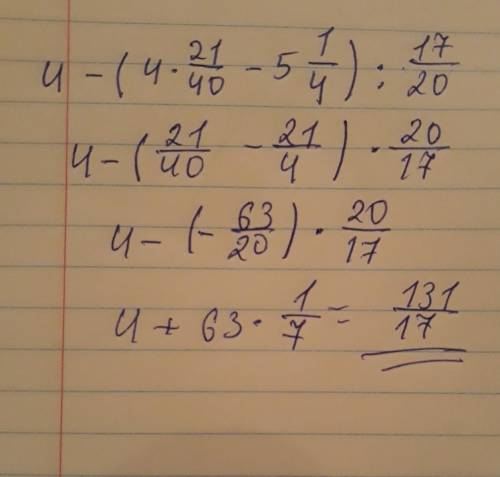 4 - (4 · 21/40 - 5 1/4) : 17/20
4 - (21/40 - 21/4) · 20/17
4 - (- 63/20) · 20/17
4 + 63 · 1/7 = 131/17